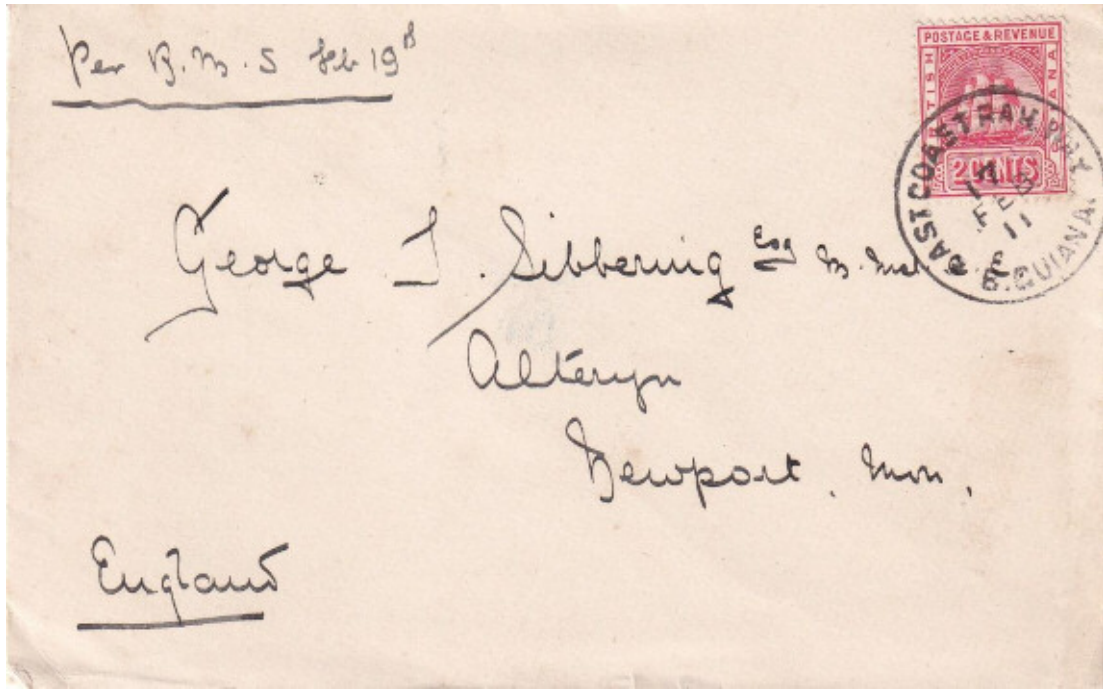 Per R.M.S Feb 19th
POSTAGE & REVENUE
BRITISH GUIANA
2 CENTS
EAST COAST RAILWAY
17
FEB
11
B. GUIANA.
George T. Sibbering Esq
Alteryn
Newport, Mon,
England